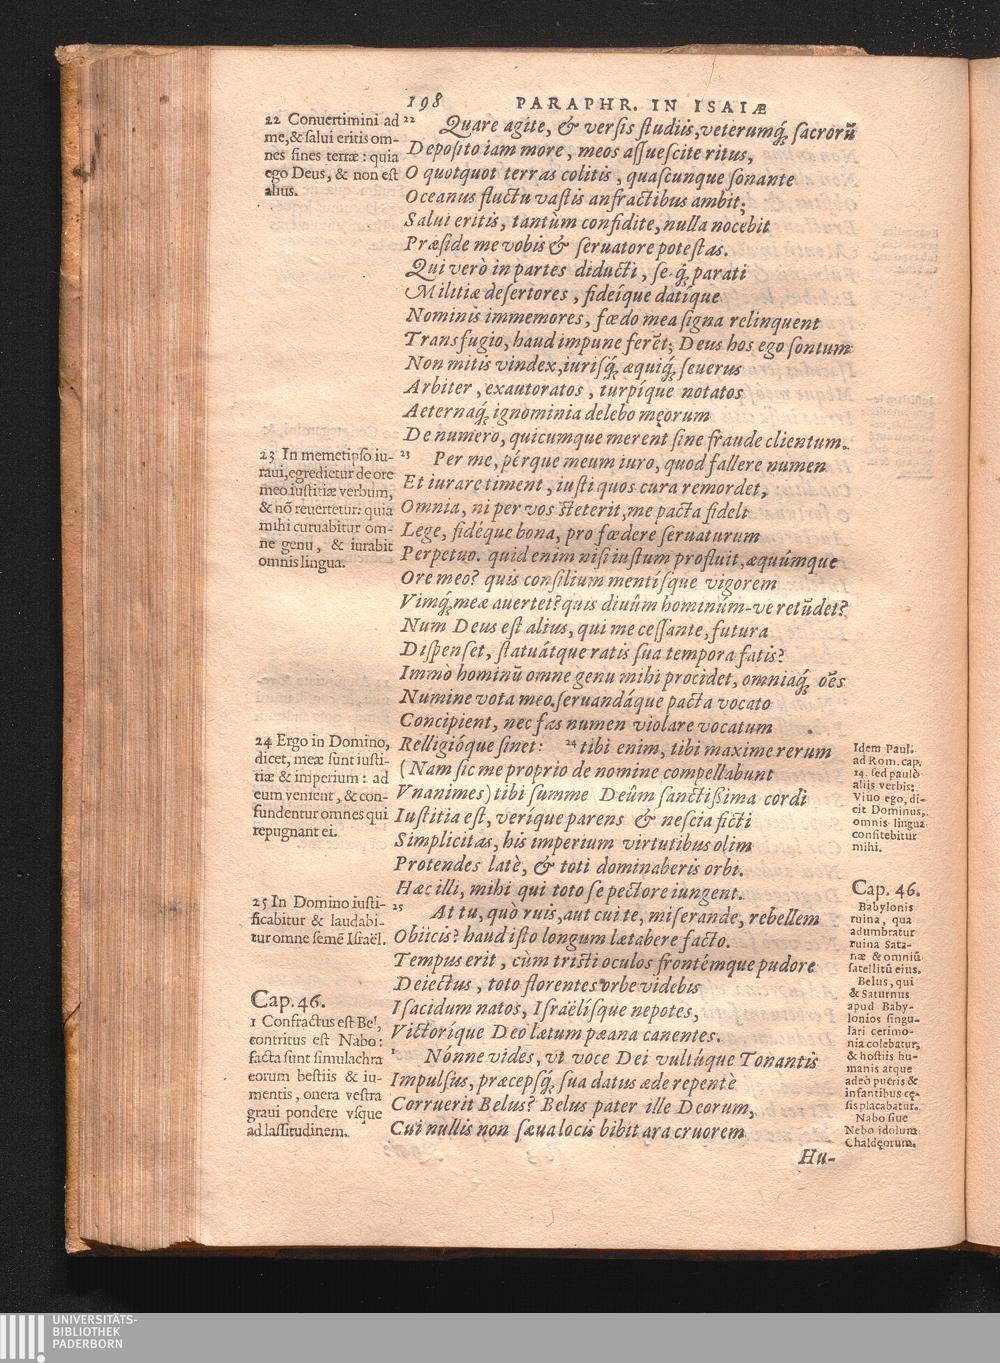 198 PARAPHR. IN ISAIÆ
22 Conuertimini ad
me,& salui eritis om-
nes fines terræ: quia
ego Deus, & non est
alius.
22 Quare agite, & versis studiis, veterumq́ꝫ sacrorū
Deposito iam more, meos assuescite ritus,
O quotquot terras colitis, quascunque sonante
Oceanus fluctu vastis anfractibus ambit;
Salui eritis, tantùm confidite, nulla nocebit
Præside me vobis & seruatore potestas.
Qui verò in partes diducti, se-q́ꝫ parati
Militiæ desertores, fideíque datíque
Nominis immemores, fœdo mea signa relinquent
Transfugio, haud impune feret; Deus hos ego sontum
Non mitis vindex, iurisq́ꝫ æquiq́ꝫ seuerus
Arbiter, exautoratos, turpíque notatos
Aeternaq́ꝫ ignominia delebo męorum
De numero, quicumque merent sine fraude clientum.
23 In memetipso iu-
raui, egredietur de ore
meo iustitiæ verbum,
& nō reuertetur: quia
mihi curuabitur om-
ne genu, & iurabit
omnis lingua.
23 Per me, pérque meum iuro, quod fallere numen
Et iurare timent, iusti quos cura remordet,
Omnia, ni per vos steterit, me pacta fideli
Lege, fidéque bona, pro fœdere seruaturum
Perpetuo. quid enim nisi iustum profluit, æquúmque
Ore meo? quis consilium mentísque vigorem
Vimq́ꝫ meæ auertet? quis diuûm hominûm-ve retūdet?
Num Deus est alius, qui me cessante, futura
Dispenset, statuátque ratis sua tempora fatis?
Immò hominū omne genu mihi procidet, omniaq́ꝫ oēs
Numine vota meo. seruandáque pacta vocato
Concipient, nec fas numen violare vocatum
Relligióque sinet: 24 tibi enim, tibi maxime rerum
(Nam sic me proprio de nomine compellabunt
Vnanimes) tibi summe Deûm sanctißima cordi
Iustitia est, veríque parens & nescia ficti
Simplicitas, his imperium virtutibus olim
Protendes latè, & toti dominaberis orbi.
Hæc illi, mihi qui toto se pectore iungent.
24 Ergo in Domino,
dicet, meæ sunt iusti-
tiæ & imperium: ad
eum venient, & con-
fundentur omnes qui
repugnant ei.
Idem Paul.
ad Rom. cap.
14. sed paulò
aliis verbis:
Viuo ego, di-
cit Dominus,
omnis lingua
confitebitur
mihi.
25 In Domino iusti-
ficabitur & laudabi-
tur omne semē Israël.
25 At tu, quò ruis, aut cui te, miserande, rebellem
Obiicis? haud isto longum lætabere facto.
Tempus erit, cùm tristi oculos frontémque pudore
Deiectus, toto florentes orbe videbis
Isacidum natos, Israëlísque nepotes,
Victoríque Deo lætum pæana canentes.
Cap. 46.
1 Confractus est Bel,
contritus est Nabo:
facta sunt simulachra
eorum bestiis & iu-
mentis, onera vestra
graui pondere vsque
ad lassitudinem.
1 Nónne vides, vt voce Dei vultúque Tonantis
Impulsus, præcepsq́ꝫ sua datus æde repentè
Corruerit Belus? Belus pater ille Deorum,
Cui nullis non sæua locis bibit ara cruorem
Cap. 46.
Babylonis
ruina, qua
adumbratur
ruina Sata-
næ & omniū
satellitū eius.
Belus, qui
& Saturnus
apud Baby-
lonios singu-
lari cerimo-
nia colebatur,
& hostiis hu-
manis atque
adeò pueris &
infantibus cę-
sis placabatur.
Nabo siue
Nebo idolum
Chaldęorum.
Hu-
UNIVERSITÄTS-
BIBLIOTHEK
PADERBORN